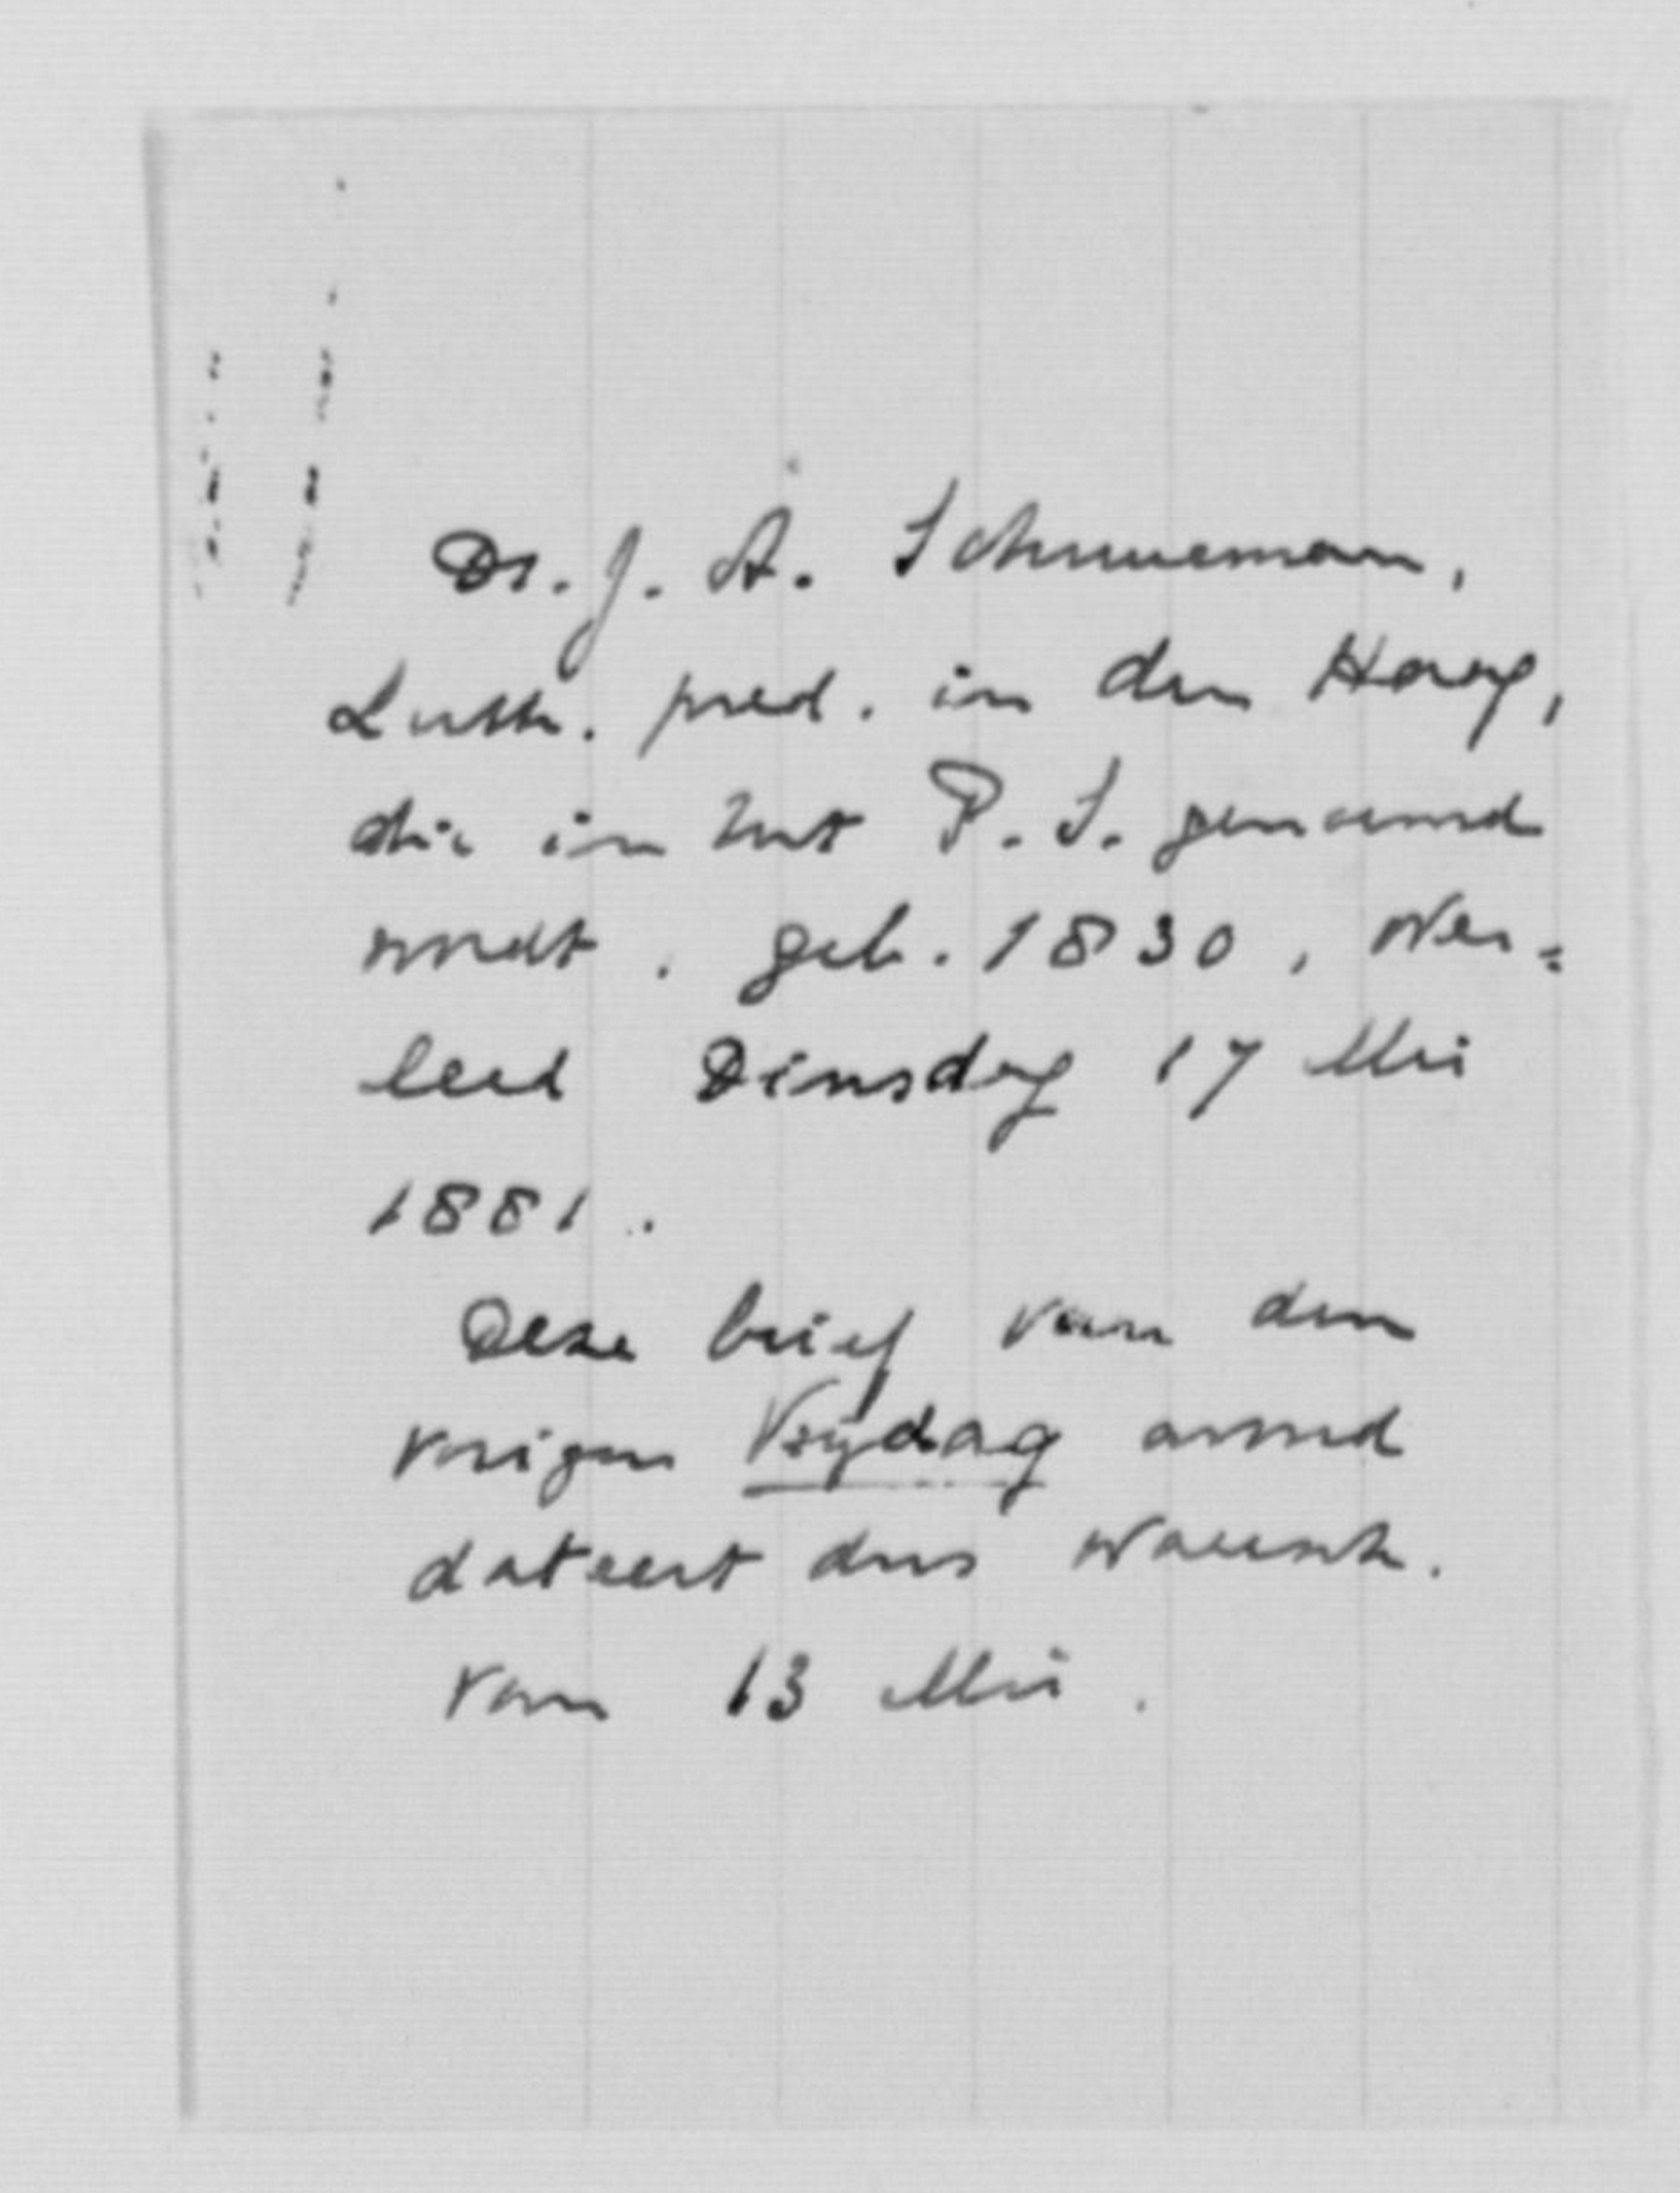 Ds. J. A. Schuurman,
Luth. pred. in den Haag,
die in het P.S. genoemd
wordt, geb. 1830, over=
leed Dinsdag 17 Mei
1881.
Deze brief van den
vorigen Vrydag avond
dateert dus waersch.
van 13 Mei.